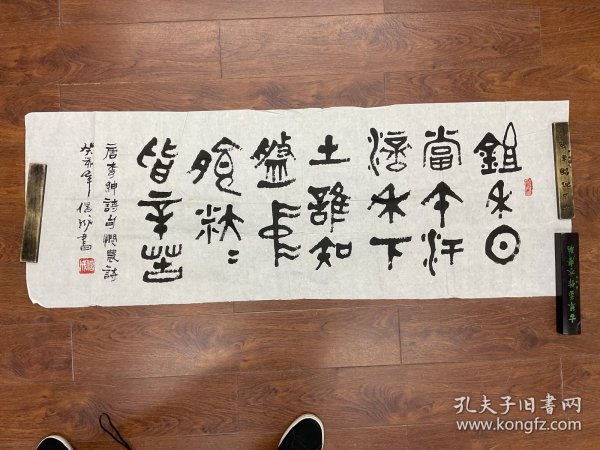 鉏禾日
當午汗
滴禾下
土誰知
盤中
飱粒〻
皆辛苦
唐李紳詩句憫農詩
癸亥年書
孔夫子旧书网
www.kongfz.com